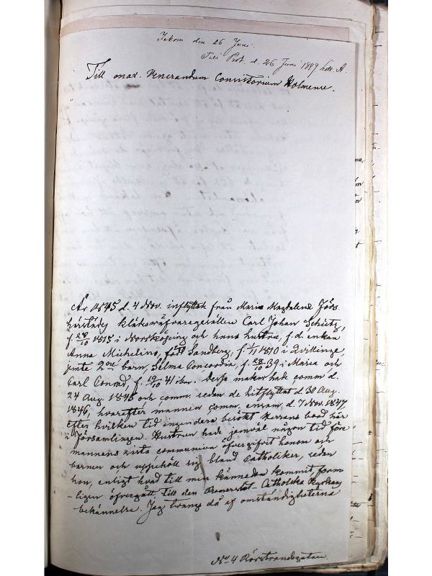 Inkom den 26 Juni
Till Prot. d. 26 Juni 1849 litt. A
Till Venerandum Consistorium Holmense.
År 1845 d. 4 Nov. inflyttat från Maria Magdalena
Carl Johan Schütz,
f. 1815 i Norrköping och hans hustru, f. d. enkan
Anna Michelina, född Sandberg, f. 1810 i Qvillinge,
jemte 2ne barn, Selma Concordia, f. 39 i Maria och
Carl Conrad, f. 41 ibm. Dessa makar hafva comm. d.
24 Aug. 1845 och comm. sedan de hitflyttat d. 30 Aug.
1846, hvarefter mannen comm. ensam, d. 7 Nov. 1847
efter hvilken tid ingendera besökt Herrans bord här
i Församlingen. Hustrun had jemväl någon tid före
mannens sista communion öfvergifvit honom och
barnen och uppehöll sig bland Catholiker, sedan
hon, enligt hvad till min kännedom kommit,
öfvergått till den Catholska Kyrkans
bekännelse. Jag af omständigheterna
No 4 Rörstrandsgatan